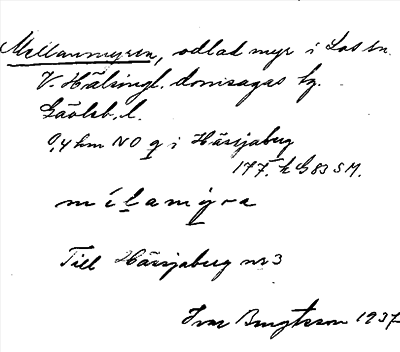 Mellanmyren, odlad myr i Los sn.
V. Hälsingl. domsagas tg.
Gävleb. l.
0,4 km NO g i Härsjaberg
177. k G 83 SM.
mélamýra
Till Härsjaberg nr 3
Ivar Bengtsson 1937